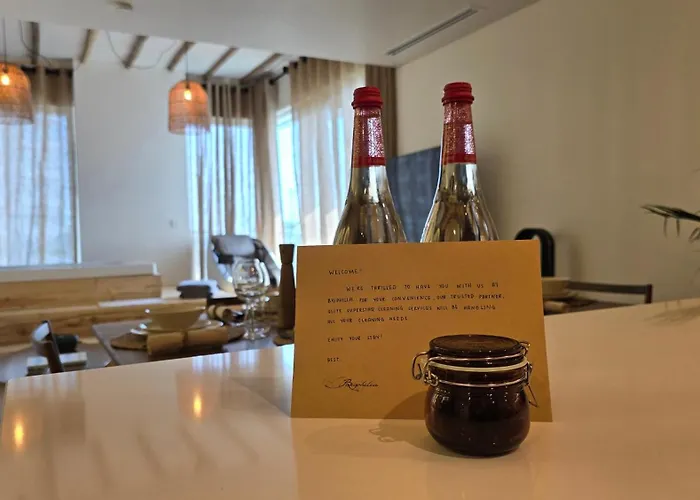 WELCOME!
WE'RE THRILLED TO HAVE YOU WITH US AT
FOR YOUR CONVENIENCE, OUR TRUSTED PARTNER,
ELITE SUPERSTAR CLEANING SERVICES WILL BE HANDLING
ALL YOUR CLEANING NEEDS.
ENJOY YOUR STAY!
BEST,